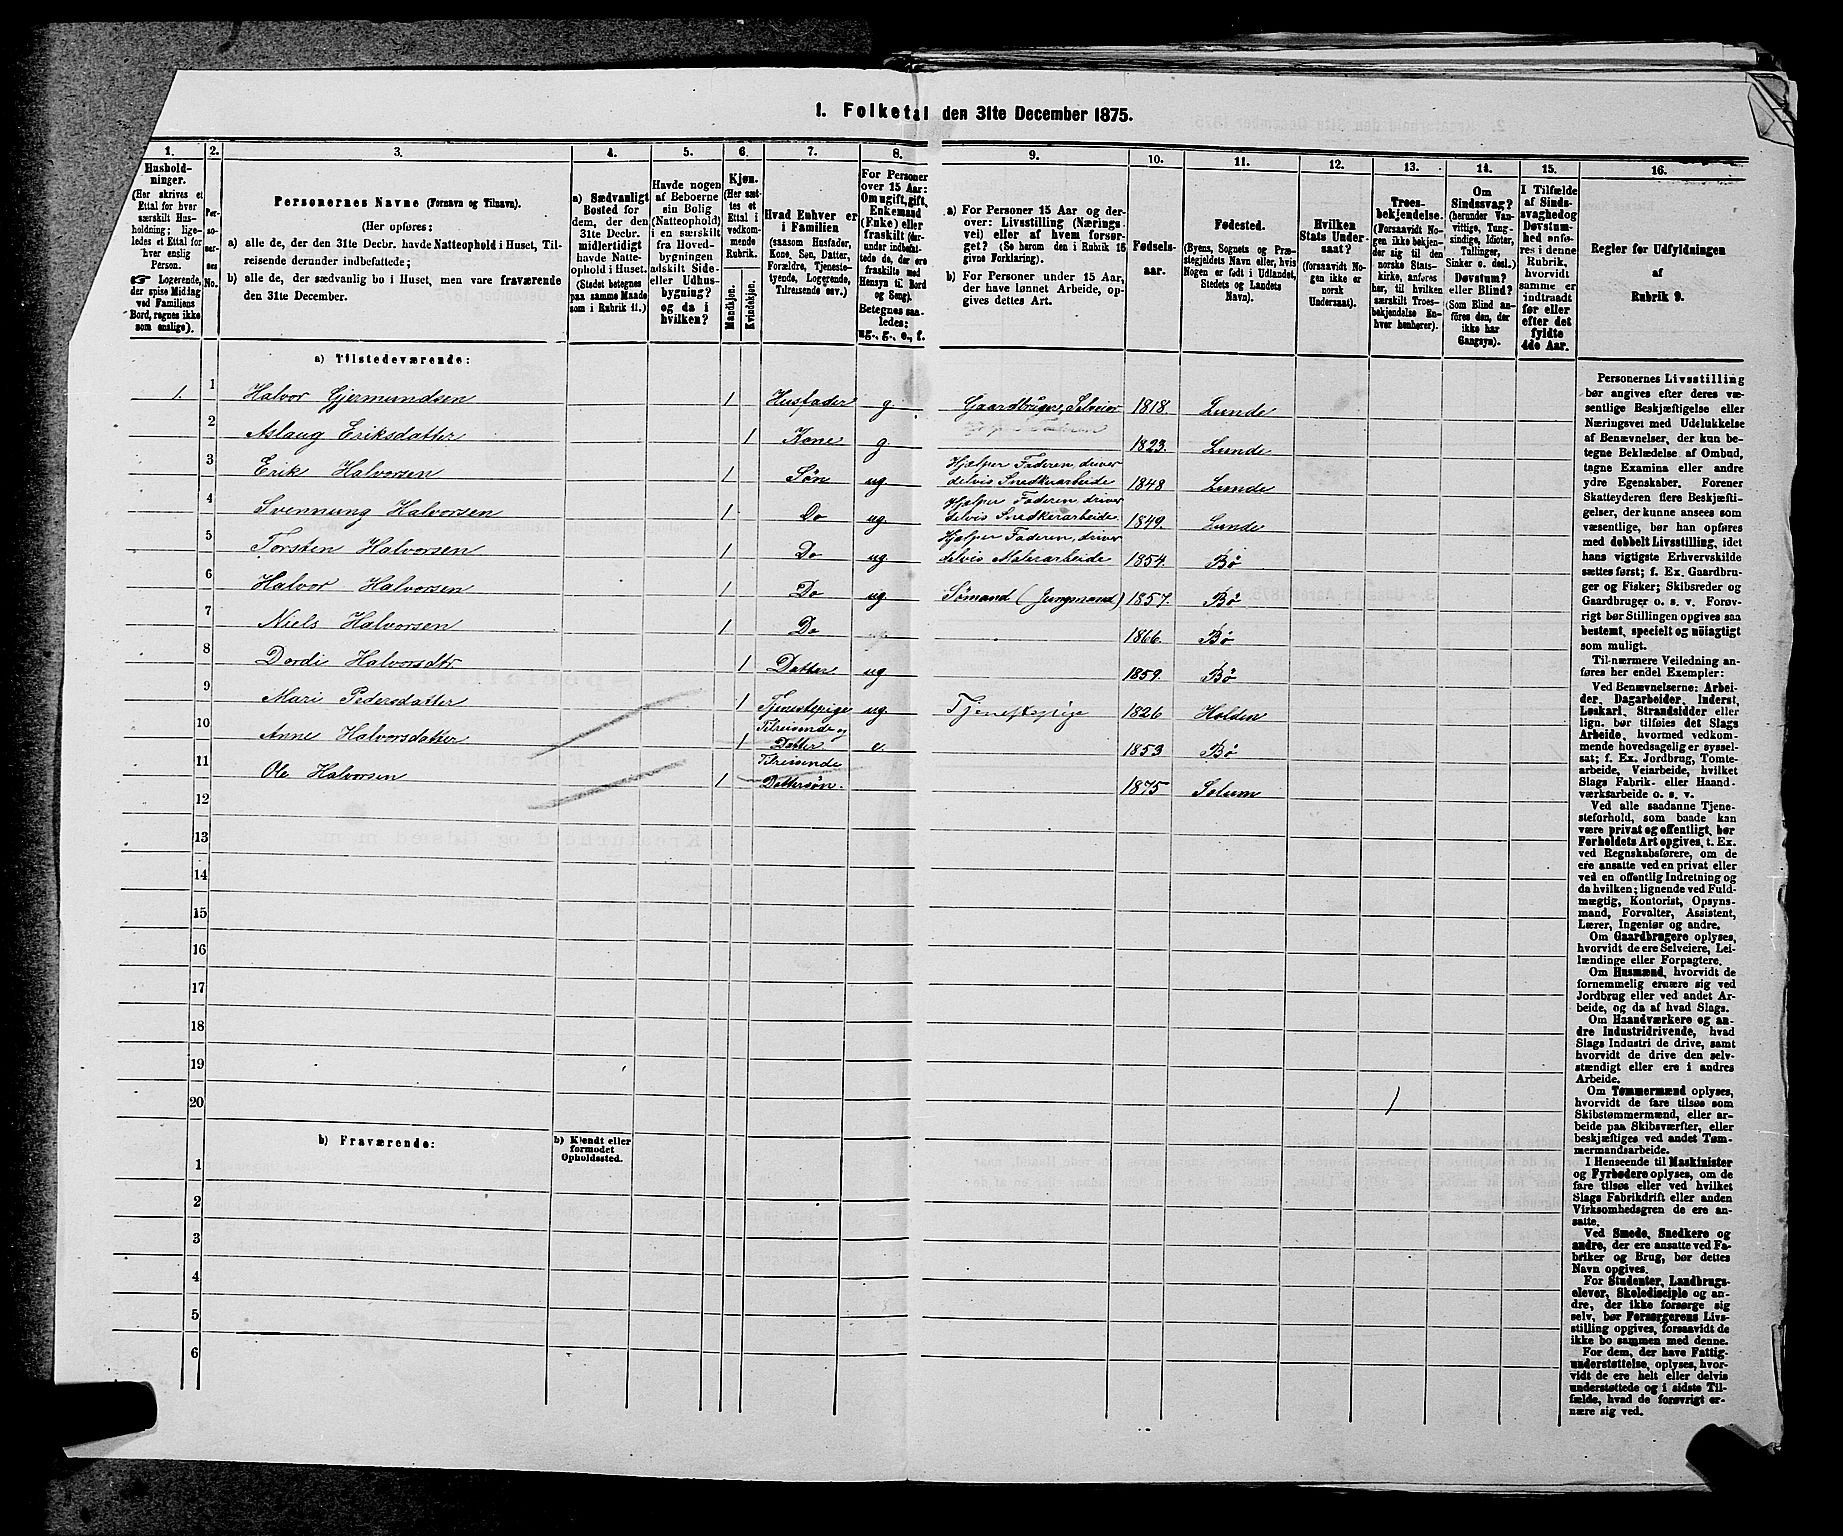 1. Folketal den 31te December 1875.
1. 2. 3. 4. 5. 6. 7. 8. 9. 10. 11. 12. 13. 14. 15. 16.
Hushold-
ninger.
(Her skrives et
Ettal for hver
særskilt Hus-
holdning; lige-
ledes et Ettal for
hver enslig
Person.
☞ Logerende,
der spise Middag
ved Familiens
Bord, regnes ikke
som enslige).
Per-
so-
ner-
nes
No.
Personernes Navne (Fornavn og Tilnavn).
(Her opføres:
a) alle de, der den 31te Decbr. havde Natteophold i Huset, Til-
reisende derunder indbefattede;
b) alle de, der sædvanlig bo i Huset, men vare fraværende
den 31te December.
a) Sædvanligt
Bosted for
dem, der den
31te Decbr.
midlertidigt
havde Natte-
ophold i Huset.
(Stedet betegnes
paa samme Maade
som i Rubrik 11.)
Havde nogen
af Beboerne
sin Bolig
(Natteophold)
i en særskilt
fra Hoved-
bygningen
adskilt Side-
eller Udhus-
bygning?
og da i
hvilken?
Kjøn.
(Her sæt-
tes et
Ettal i
vedkom-
mende
Rubrik.
Mandkjøn.
Kvindekjøn.
Hvad Enhver er
i Familien
(saasom Husfader,
Kone, Søn, Datter,
Forældre, Tjeneste-
tyende, Logerende,
Tilreisende osv.)
For Personer
over 15 Aar:
Om ugift, gift,
Enkemand
(Enke) eller
fraskilt (der-
under indbefat-
tede de, der ere
fraskilte med
Hensyn til Bord
og Seng).
Betegnes saa-
ledes:
ug., g., e., f.
a) For Personer 15 Aar og der-
over: Livsstilling (Nærings-
vei) eller af hvem forsør-
get? (Se herom den i Rubrik 16
givne Forklaring).
b) For Personer under 15 Aar,
der have lønnet Arbeide, op-
gives dettes Art.
Fødsels-
aar.
Fødested.
(Byens, Sognets og Præ-
stegjeldets Navn eller, hvis
Nogen er født i Udlandet,
Stedets og Landets
Navn).
Hvilken
Stats Under-
saat?
(forsaavidt No-
gen ikke er
norsk
Undersaat).
Troes-
bekjendelse.
(Forsaavidt No-
gen ikke bekjen-
der sig til den
norske Stats-
kirke, anføres
her, til hvilken
særskilt Troes-
bekjendelse En-
hver henhører).
Om
Sindssvag?
(herunder Van-
vittige, Tung-
sindige, Idioter,
Tullinger,
Sinker o. desl.)
Døvstum?
eller Blind?
(Som Blind an-
føres den, der
ikke har
Gangsyn).
I Tilfælde
af Sinds-
svaghed og
Døvstum-
hed anfø-
res i denne
Rubrik,
hvorvidt
samme er
indtraadt
før eller
efter det
fyldte
4de Aar.
Regler for Udfyldningen
af
Rubrik 9.
a) Tilstedeværende:
1. 1 Halvor Gjermundsen 1 Husfader g Gaardbruger, Selveier 1818. Lunde
2 Aslaug Eriksdatter 1 Kone g 1823. Lunde
3 Erik Halvorsen 1 Søn ug Hjelper Faderen, driver
delvis Snedkerarbeide 1848 Lunde
4 Svennung Halvorsen 1 Do ug. Hjelper Faderen driver
delvis Snedkerarbeide. 1849. Lunde
5 Torsten Halvorsen 1 Do ug Hjelper Faderen, driver
delvis Malerarbeide 1854. Bø
6 Halvor Halvorsen 1 Do ug Sømand (Jungmand) 1857. Bø
7 Niels Halvorsen 1 Do 1866. Bø
8 Dordi Halvorsdtr 1 Datter ug 1859. Bø
9 Mari Pedersdatter 1 Tjenestepige ug. Tjenestepige 1826 Holden
10 Anne Halvorsdatter 1 Tilreisende og
Datter e. 1853 Bø
11 Ole Halvorsen 1 Tilreisende
Dattersøn. 1875 Solum
12
13
14
15
16
17
18
19
20
b) Fraværende:
b) Kjendt eller
formodet
Opholdssted.
1
2
3
4
5
6
Personernes Livsstilling
bør angives efter deres væ-
sentlige Beskjæftigelse eller
Næringsvei med Udelukkelse
af Benævnelser, der kun be-
tegne Beklædelse af Ombud,
tagne Examina eller andre
ydre Egenskaber. Forener
Skatteyderen flere Beskjæfti-
gelser, der kunne ansees som
væsentlige, bør han opføres
med dobbelt Livsstilling, idet
hans vigtigste Erhvervskilde
sættes først; f. Ex. Gaardbru-
ger og Fisker; Skibsreder og
Gaardbruger o. s. v. Forøv-
rigt bør Stillingen opgives saa
bestemt, specielt og nöiagtigt
som muligt.
Til nærmere Veiledning an-
føres her endel Exempler:
Ved Benævnelserne: Arbei-
der, Dagarbeider, Inderst,
Løskarl, Strandsidder eller
lign. bør tilføies det Slags
Arbeide, hvormed vedkom-
mende hovedsagelig er syssel-
sat; f. Ex. Jordbrug, Tomte-
arbeide, Veiarbeide, hvilket
Slags Fabrik- eller Haand-
værksarbeide o. s. v.
Ved alle saadanne Tjene-
steforhold, som baade kan
være privat og offentligt, bør
Forholdets Art opgives, t. Ex.
ved Regnskabsførere, om de
ere ansatte ved en privat eller
ved en offentlig Indretning og
da hvilken; lignende ved Fuld-
mægtig, Kontorist, Opsyns-
mand, Forvalter, Assistent,
Lærer, Ingeniør og andre.
Om Gaardbrugere oplyses,
hvorvidt de ere Selveiere, Lei-
lændinge eller Forpagtere.
Om Husmænd, hvorvidt de
fornemmelig ernære sig ved
Jordbrug eller ved andet Ar-
beide, og da af hvad Slags.
Om Haandværkere og an-
dre Industridrivende, hvad
Slags Industri de drive, samt
hvorvidt de drive den selv-
stændigt eller ere i andres
Arbeide.
Om Tømmermænd oplyses,
hvorvidt de fare tilsøs som
Skibstømmermænd, eller ar-
beide paa Skibsværfter, eller
beskjæftiges ved andet Töm-
mermandsarbeide.
I Henseende til Maskinister
og Fyrbødere oplyses, om de
fare tilsøs eller ved hvilket
Slags Fabrikdrift eller anden
Virksomhedsgren de ere an-
satte.
Ved Smede, Snedkere og
andre, der ere ansatte ved Fa-
briker og Brug, bør dettes
Navn opgives.
For Studenter, Landbrugs-
elever, Skoledisciple og an-
dre, der ikke forsørge sig
selv, bør Forsørgerens Livs-
stilling opgives, forsaavidt de
ikke bo sammen med denne.
For dem, der have Fattig-
understøttelse, oplyses, hvor-
vidt de ere helt eller delvis
understøttede og i sidste Til-
fælde, hvad de forøvrigt er-
nære sig ved.